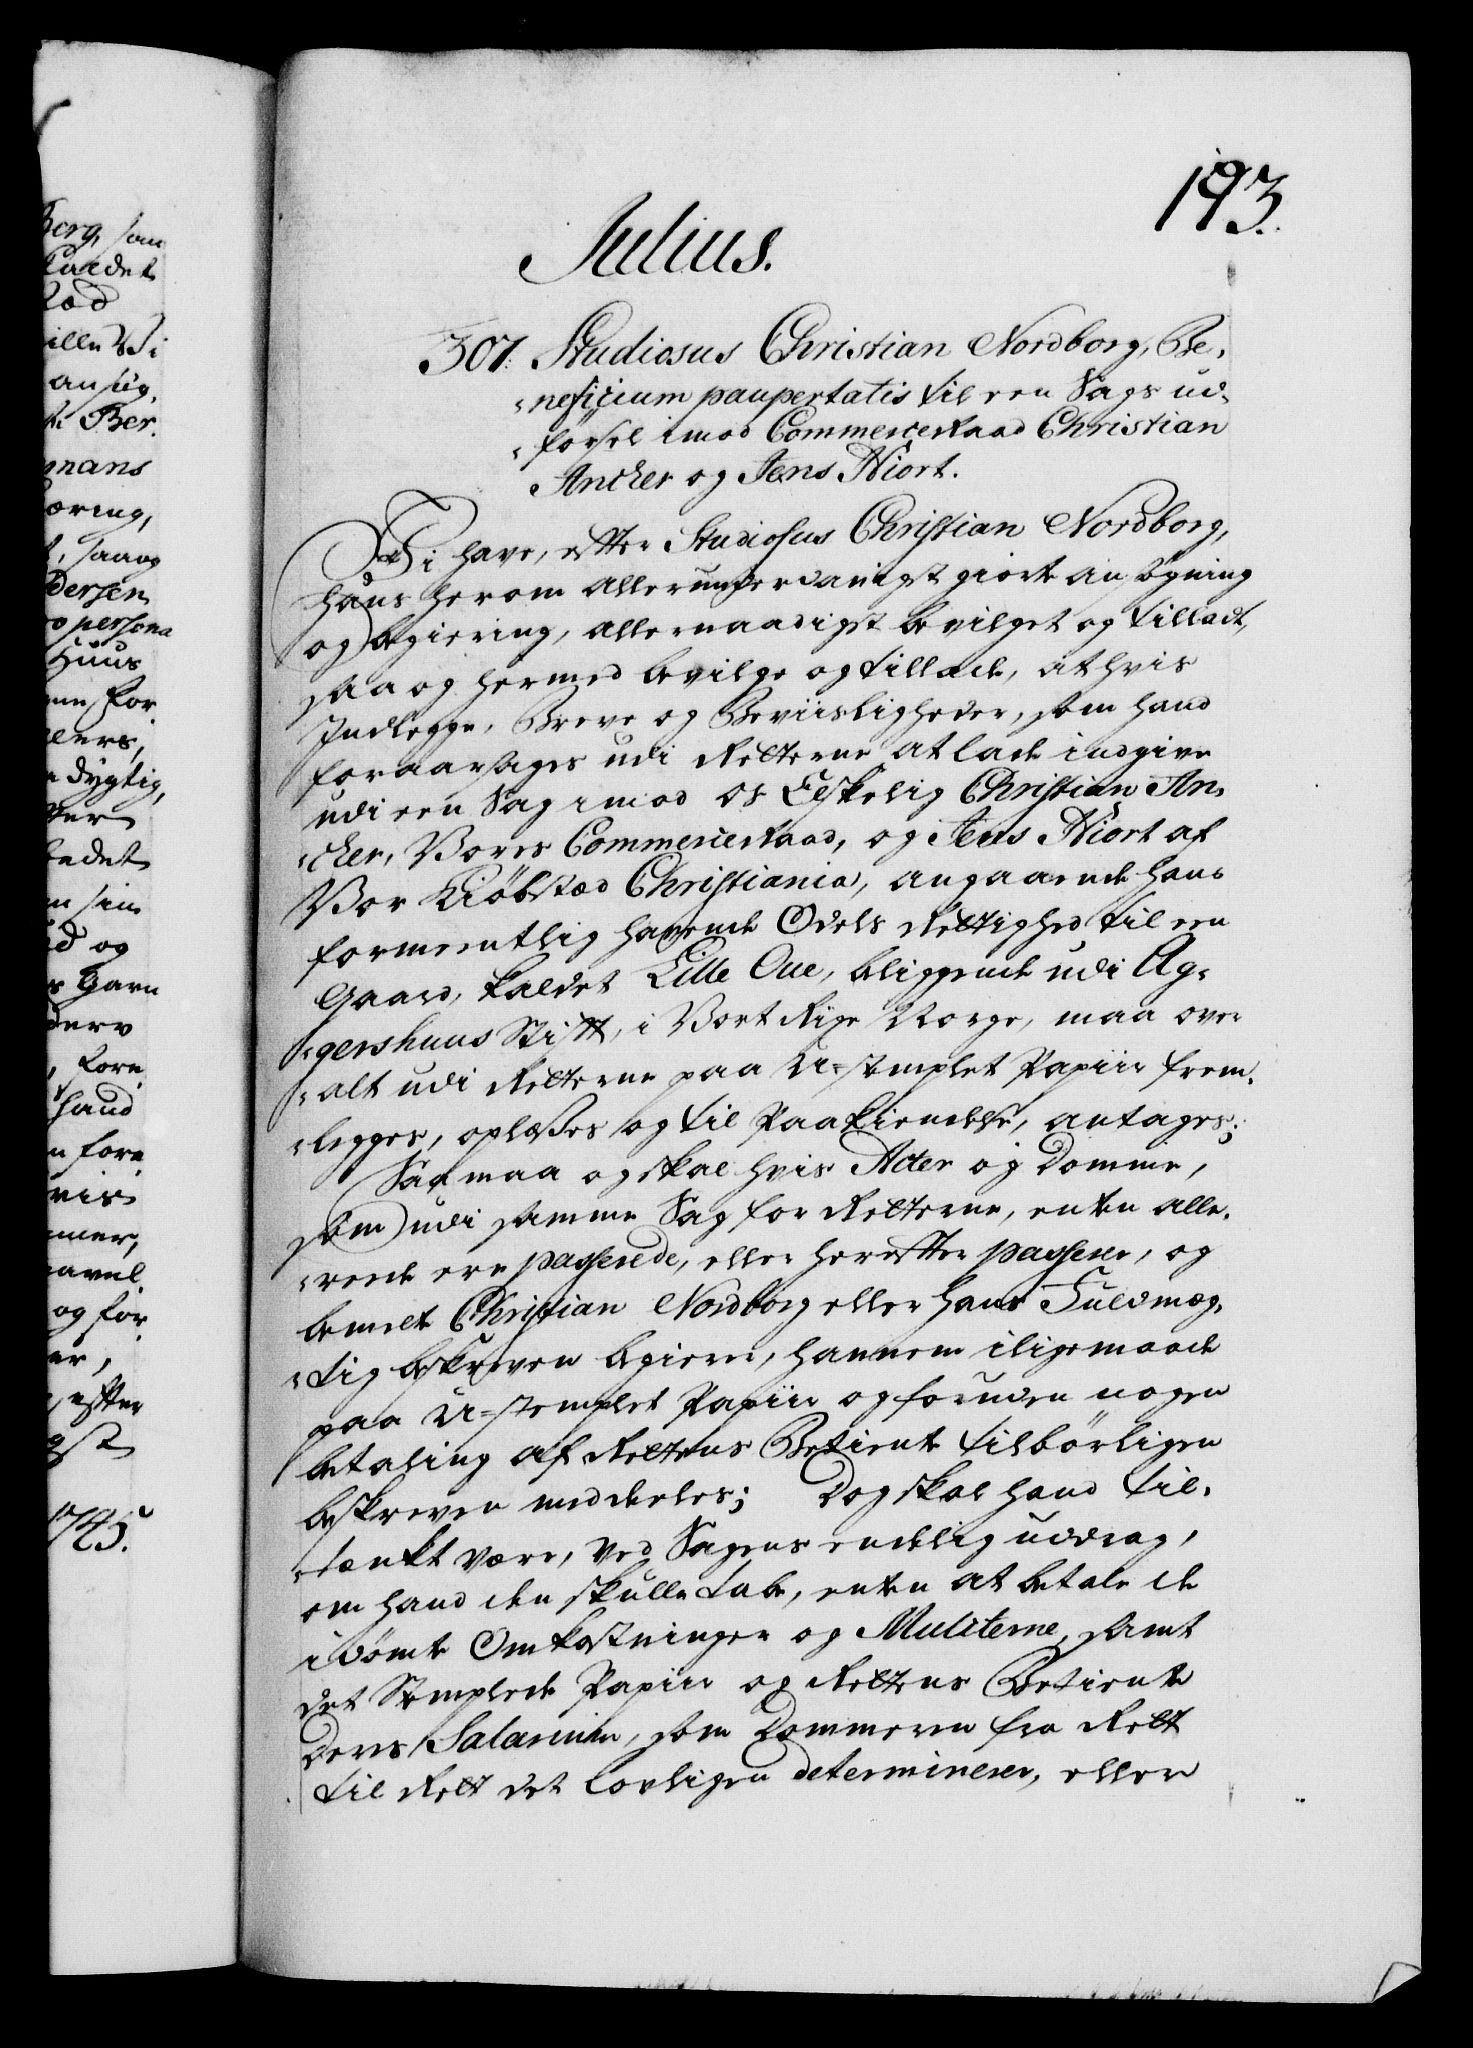 193.
Julius.
307. Studiosus Christian Nordborg, Be-
neficium paupertatis til een Sags ud-
førsel imod Commerceraad Christian
Ancher og Jens Hiort.
Wi have, efter Studiosus Christian Nordborg,
hans herom allerunderdanigst giorte ansøgning
og begiering, allernaadigst bevilget og tilladt,
saa og hermed bevilge og tillade, at hvis
Indlegge, Breve og Beviisligheder, som hand
foraarsages udi Retterne at lade indgive
udi een Sag imod os Elskelig Christian An-
cher, Vores Commerceraad, og Jens Hiort af
Vor Kiøbstæd Christiania, angaaende hans
formeentlig havende Odels Rettighed til een
Gaard, kaldet Lille Oue, beliggende udi Ag-
gershuus Stift, i Vort Rige Norge, maa over
alt udi Retterne paa U-stemplet Papiir frem-
legges, oplæses og til Paakiendelse, antages;
Saa maa og skal hvis Acter og Domme,
som udi samme Sag for Retterne, enten alle-
rede ere passerede, eller herefter passerer, og
bemelte Christian Nordborg eller hans Fuldmæg-
tig beskreven begierer, hannem iligemaade
paa U-stemplet Papiir og foruden nogen
betaling af Rettens Betiente tilbørligen
beskreven meddeeles; Dog skal hand til-
tænkt være, ved Sagens endelig uddrag,
om hand den skulle tabe, enten at betale de
idømte Omkostninger og Mulcterne, samt
det Stemplede Papiir og Rettens Betiente
Deres Salarium, som Dommeren fra Rett
til Rett det lovligen determinerer, eller
Berg, som
kaldet
Ber.
dersen
persona
Huus
dygtig,
og
Garn
hand
og for
efter
1745.